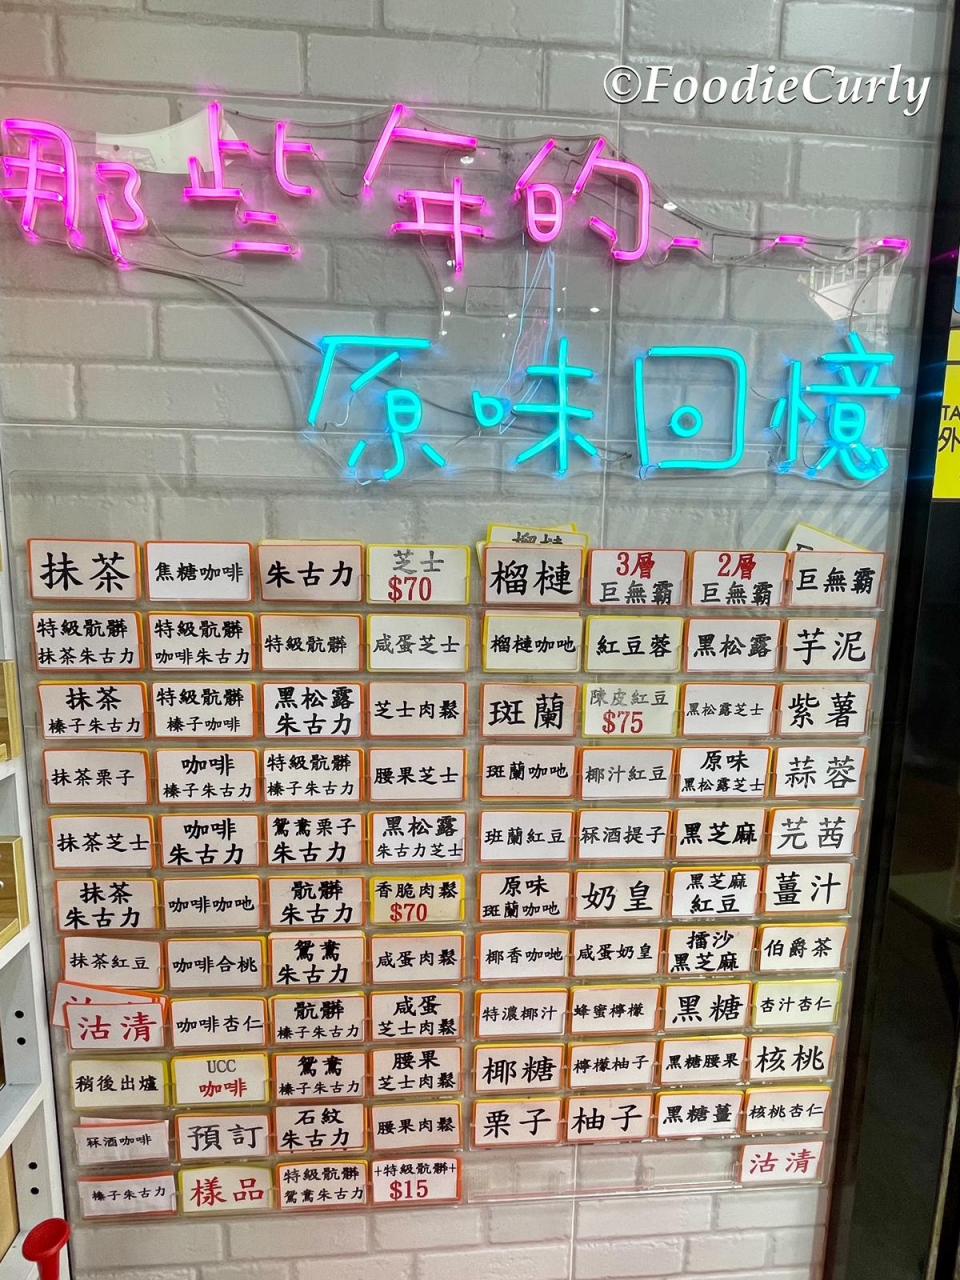 ©FoodieCurly
那些年的
原味回憶
外
抹茶
焦糖咖啡
朱古力
芝士
$70
榴槤
榴槤
3層
巨無霸
2層
巨無霸
巨無霸
特級骯髒
抹茶朱古力
特級骯髒
咖啡朱古力
特級骯髒
咸蛋芝士
榴槤咖吔
紅豆蓉
黑松露
芋泥
抹茶
榛子朱古力
特級骯髒
榛子咖啡
黑松露
朱古力
芝士肉鬆
斑蘭
陳皮紅豆
$75
黑松露芝士
紫薯
抹茶栗子
咖啡
榛子朱古力
特級骯髒
榛子朱古力
腰果芝士
斑蘭咖吔
椰汁紅豆
原味
黑松露芝士
蒜蓉
抹茶芝士
咖啡
朱古力
鴛鴦栗子
朱古力
黑松露
朱古力芝士
班蘭紅豆
冧酒提子
黑芝麻
芫茜
抹茶
朱古力
咖啡咖吔
骯髒
朱古力
香脆肉鬆
$70
原味
斑蘭咖吔
奶皇
黑芝麻
紅豆
薑汁
抹茶紅豆
咖啡合桃
鴛鴦
朱古力
咸蛋肉鬆
椰香咖吔
咸蛋奶皇
擂沙
黑芝麻
伯爵茶
沽清
咖啡杏仁
骯髒
榛子朱古力
咸蛋
芝士肉鬆
特濃椰汁
蜂蜜檸檬
黑糖
杏汁杏仁
稍後出爐
UCC
咖啡
鴛鴦
榛子朱古力
腰果
芝士肉鬆
椰糖
檸檬柚子
黑糖腰果
核桃
冧酒咖啡
預訂
石紋
朱古力
腰果肉鬆
栗子
柚子
黑糖薑
核桃杏仁
榛子朱古力
樣品
特級骯髒
鴛鴦朱古力
+特級骯髒+
$15
沽清